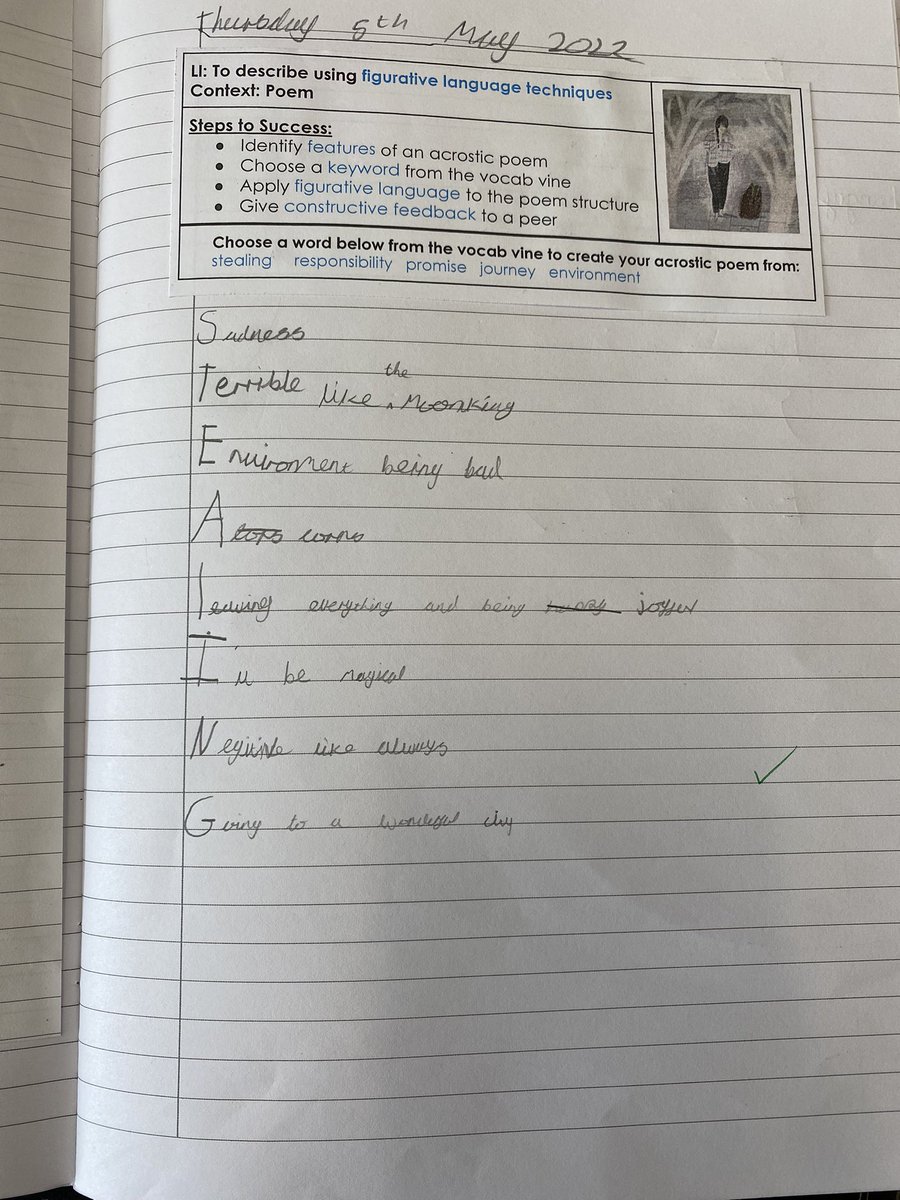 Thursday 5th May 2022
LI: To describe using figurative language techniques
Context: Poem
Steps to Success:
• Identify features of an acrostic poem
• Choose a keyword from the vocab vine
• Apply figurative language to the poem structure
• Give constructive feedback to a peer
Choose a word below from the vocab vine to create your acrostic poem from:
stealing responsibility promise journey environment
Sadness
Terrible like the Moonking
Enviroment being bad
Acorns
leaving everything and being
I'll be magical
like always
Going to a